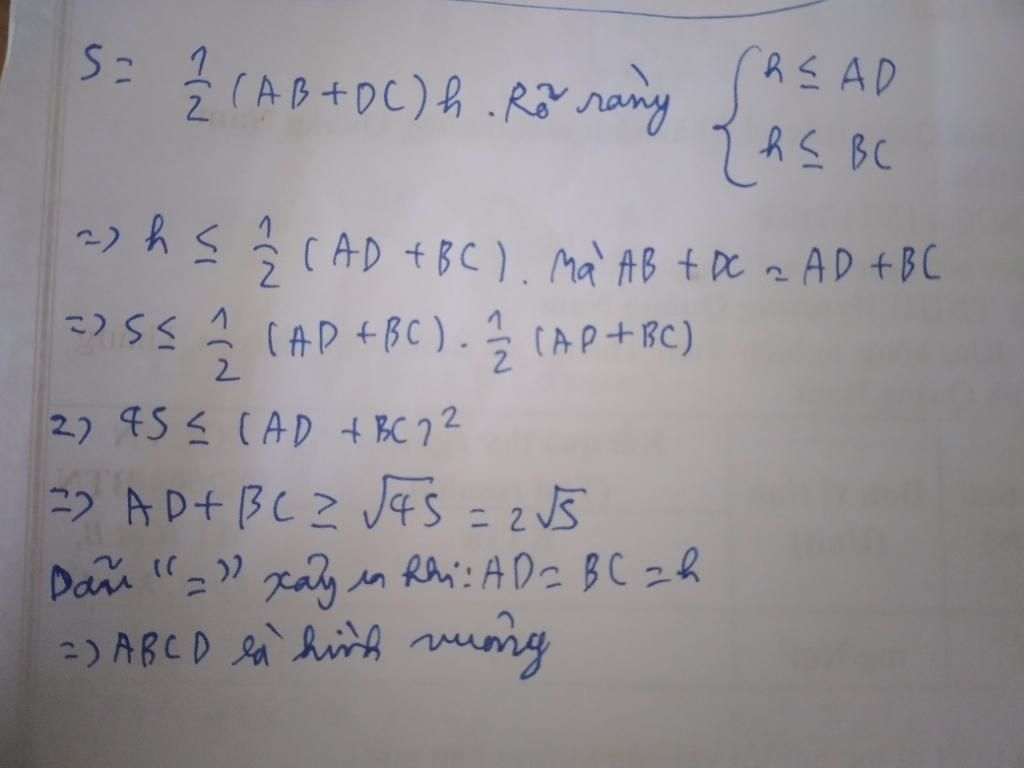 S = 1/2 (AB + DC) h . Rõ ràng { h ≤ AD
h ≤ BC
=> h ≤ 1/2 (AD + BC). Mà AB + DC = AD + BC
=> S ≤ 1/2 (AD + BC) . 1/2 (AD + BC)
=> 4S ≤ (AD + BC)²
=> AD + BC ≥ √4S = 2√S
Dấu "=" xảy ra khi: AD = BC = h
=> ABCD là hình vuông